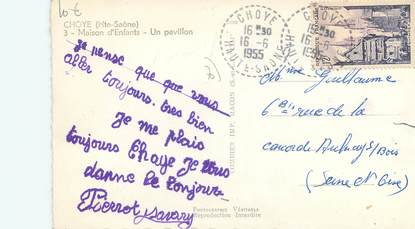 10€
CHOYE (Hte-Saône)
3 - Maison d'Enfants - Un pavillon
CHOYE
16 H 30
16-6
1955
HAUTE-SAONE
Je pense que que vous
aller toujours. tres bien
Je me plais
toujours Choye Je vous
danne le bonjour
Pierrot Savary
COMBIER IMP. MACON
Photographie Véritable
Reproduction Interdite
Mme Guillaume
6 bis rue de la
Aulnay s/Bois
(Seine et Oise)